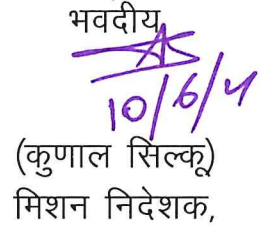 भवदीय
10/6/4
(कुणाल सिल्कू)
मिशन निदेशक,